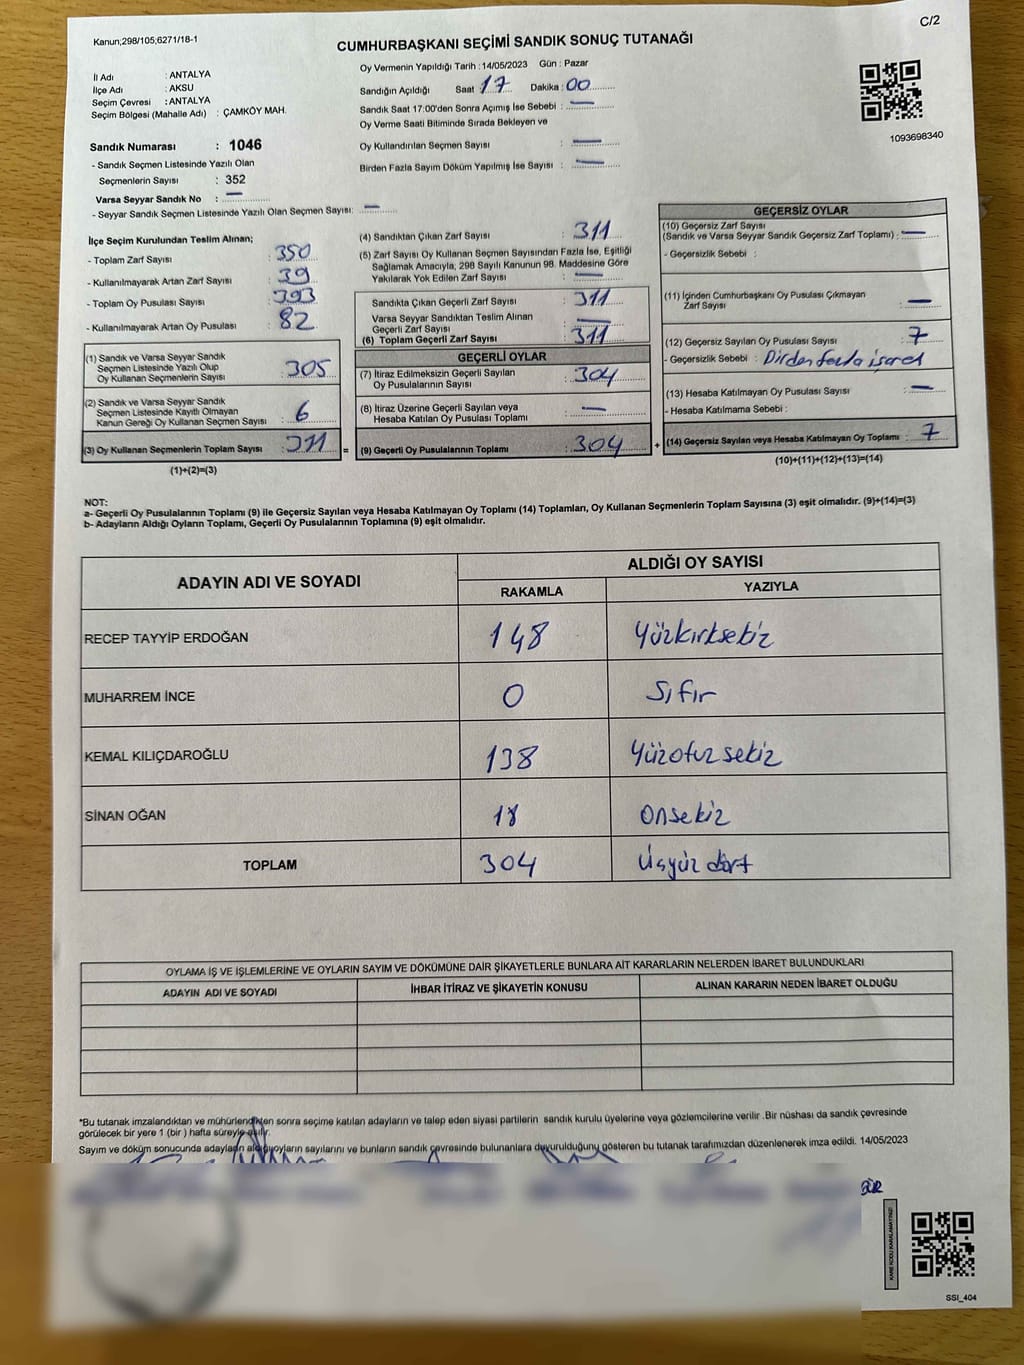 Kanun;298/105;6271/18-1
C/2
CUMHURBAŞKANI SEÇİMİ SANDIK SONUÇ TUTANAĞI
İl Adı : ANTALYA
İlçe Adı : AKSU
Seçim Çevresi : ANTALYA
Seçim Bölgesi (Mahalle Adı) : ÇAMKÖY MAH.
Oy Vermenin Yapıldığı Tarih : 14/05/2023 Gün : Pazar
Sandığın Açıldığı Saat : 17 Dakika : 00
Sandık Saat 17:00'den Sonra Açımış İse Sebebi : —
Oy Verme Saati Bitiminde Sırada Bekleyen ve
Oy Kullandırılan Seçmen Sayısı : —
Birden Fazla Sayım Döküm Yapılmış İse Sayısı : —
1093698340
Sandık Numarası : 1046
- Sandık Seçmen Listesinde Yazılı Olan
Seçmenlerin Sayısı : 352
Varsa Seyyar Sandık No : —
- Seyyar Sandık Seçmen Listesinde Yazılı Olan Seçmen Sayısı: —
İlçe Seçim Kurulundan Teslim Alınan;
- Toplam Zarf Sayısı : 350
- Kullanılmayarak Artan Zarf Sayısı : 39
- Toplam Oy Pusulası Sayısı : 393
- Kullanılmayarak Artan Oy Pusulası : 82
(1) Sandık ve Varsa Seyyar Sandık
Seçmen Listesinde Yazılı Olup
Oy Kullanan Seçmenlerin Sayısı : 305
(2) Sandık ve Varsa Seyyar Sandık
Seçmen Listesinde Kayıtlı Olmayan
Kanun Gereği Oy Kullanan Seçmen Sayısı : 6
(3) Oy Kullanan Seçmenlerin Toplam Sayısı : 311 =
(1)+(2)=(3)
(4) Sandıktan Çıkan Zarf Sayısı : 311
(5) Zarf Sayısı Oy Kullanan Seçmen Sayısından Fazla İse, Eşitliği
Sağlamak Amacıyla, 298 Sayılı Kanunun 98. Maddesine Göre
Yakılarak Yok Edilen Zarf Sayısı : —
Sandıkta Çıkan Geçerli Zarf Sayısı : 311
Varsa Seyyar Sandıktan Teslim Alınan
Geçerli Zarf Sayısı : —
(6) Toplam Geçerli Zarf Sayısı : 311
GEÇERLİ OYLAR
(7) İtiraz Edilmeksizin Geçerli Sayılan
Oy Pusulalarının Sayısı : 304
(8) İtiraz Üzerine Geçerli Sayılan veya
Hesaba Katılan Oy Pusulası Toplamı : —
(9) Geçerli Oy Pusulalarının Toplamı : 304 +
GEÇERSİZ OYLAR
(10) Geçersiz Zarf Sayısı
(Sandık ve Varsa Seyyar Sandık Geçersiz Zarf Toplamı) : —
- Geçersizlik Sebebi :
(11) İçinden Cumhurbaşkanı Oy Pusulası Çıkmayan
Zarf Sayısı : —
(12) Geçersiz Sayılan Oy Pusulası Sayısı : 7
- Geçersizlik Sebebi : Birden fazla işaret
(13) Hesaba Katılmayan Oy Pusulası Sayısı : —
- Hesaba Katılmama Sebebi :
(14) Geçersiz Sayılan veya Hesaba Katılmayan Oy Toplamı : 7
(10)+(11)+(12)+(13)=(14)
NOT:
a- Geçerli Oy Pusulalarının Toplamı (9) ile Geçersiz Sayılan veya Hesaba Katılmayan Oy Toplamı (14) Toplamları, Oy Kullanan Seçmenlerin Toplam Sayısına (3) eşit olmalıdır. (9)+(14)=(3)
b- Adayların Aldığı Oyların Toplamı, Geçerli Oy Pusulalarının Toplamına (9) eşit olmalıdır.
ADAYIN ADI VE SOYADI ALDIĞI OY SAYISI
RAKAMLA YAZIYLA
RECEP TAYYİP ERDOĞAN 148 Yüzkırksekiz
MUHARREM İNCE 0 Sıfır
KEMAL KILIÇDAROĞLU 138 Yüzotuz sekiz
SİNAN OĞAN 18 onsekiz
TOPLAM 304 Üçyüz dört
OYLAMA İŞ VE İŞLEMLERİNE VE OYLARIN SAYIM VE DÖKÜMÜNE DAİR ŞİKAYETLERLE BUNLARA AİT KARARLARIN NELERDEN İBARET BULUNDUKLARI
ADAYIN ADI VE SOYADI İHBAR İTİRAZ VE ŞİKAYETİN KONUSU ALINAN KARARIN NEDEN İBARET OLDUĞU
*Bu tutanak imzalandıktan ve mühürlendikten sonra seçime katılan adayların ve talep eden siyasi partilerin sandık kurulu üyelerine veya gözlemcilerine verilir .Bir nüshası da sandık çevresinde
görülecek bir yere 1 (bir ) hafta süreyle asılır.
Sayım ve döküm sonucunda adayların aldığı oyların sayılarını ve bunların sandık çevresinde bulunanlara duyurulduğunu gösteren bu tutanak tarafımızdan düzenlenerek imza edildi. 14/05/2023
KARE KODU KARALAMAYINIZ!
SSI_404